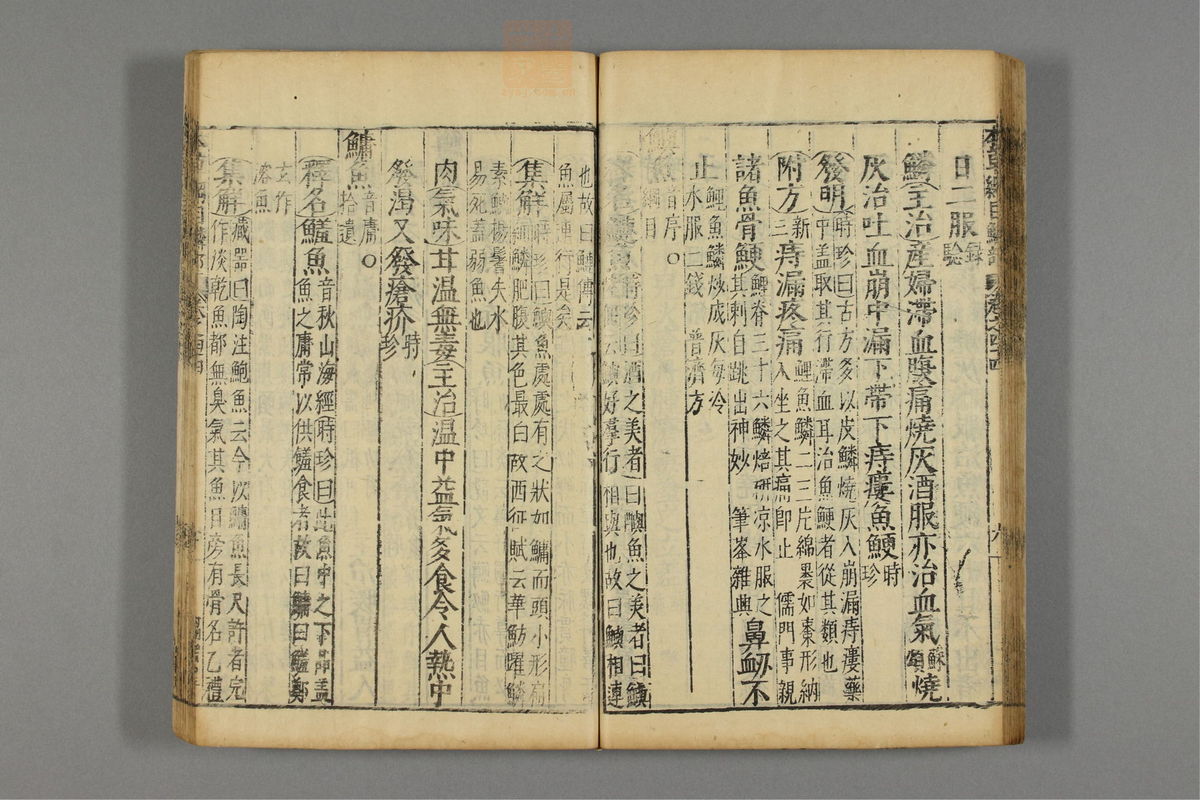 日二服錄驗
鱗主治産婦滯血腹痛燒灰酒服亦治血氣蘇頌燒
灰治吐血崩中漏下帶下痔瘻魚鯁時珍
發明時珍曰古方多以皮鱗燒灰入崩漏痔瘻藥
中蓋取其行滯血耳治魚鯁者從其類也
附方新三痔漏疼痛鯉魚鱗二三片綿裹如棗形納
入坐之其痛卽止 儒門事親
諸魚骨鯁鯉脊三十六鱗焙研凉水服之
其刺自跳出神妙 筆峯雜興鼻衂不
止鯉魚鱗炒成灰每冷
水服二錢 普濟方
鱮魚音序○
綱目
釋名鰱魚時珍曰酒之美者曰酳魚之美者曰鱮
陸佃云鱮好羣行相與也故曰鱮相連
也故曰鰱傳云
魚屬連行是矣
集解時珍曰鱮魚處處有之狀如鱅而頭小形扁
細鱗肥腹其色最白故西征賦云華魴曜鱗
素鱮揚鬐失水
易死蓋弱魚也
肉氣味甘温無毒主治温中益氣多食令人熱中
發渴又發瘡疥時珍
鱅魚音庸○
拾遺
釋名鱃魚音秋山海經時珍曰此魚中之下品蓋
魚之庸常以供饈食者故曰鱅曰鱃鄭
玄作
溶魚
集解藏器曰陶注鮑魚云今以鱅魚長尺許者完
作淡乾魚都無臭氣其魚目旁有骨名乙禮